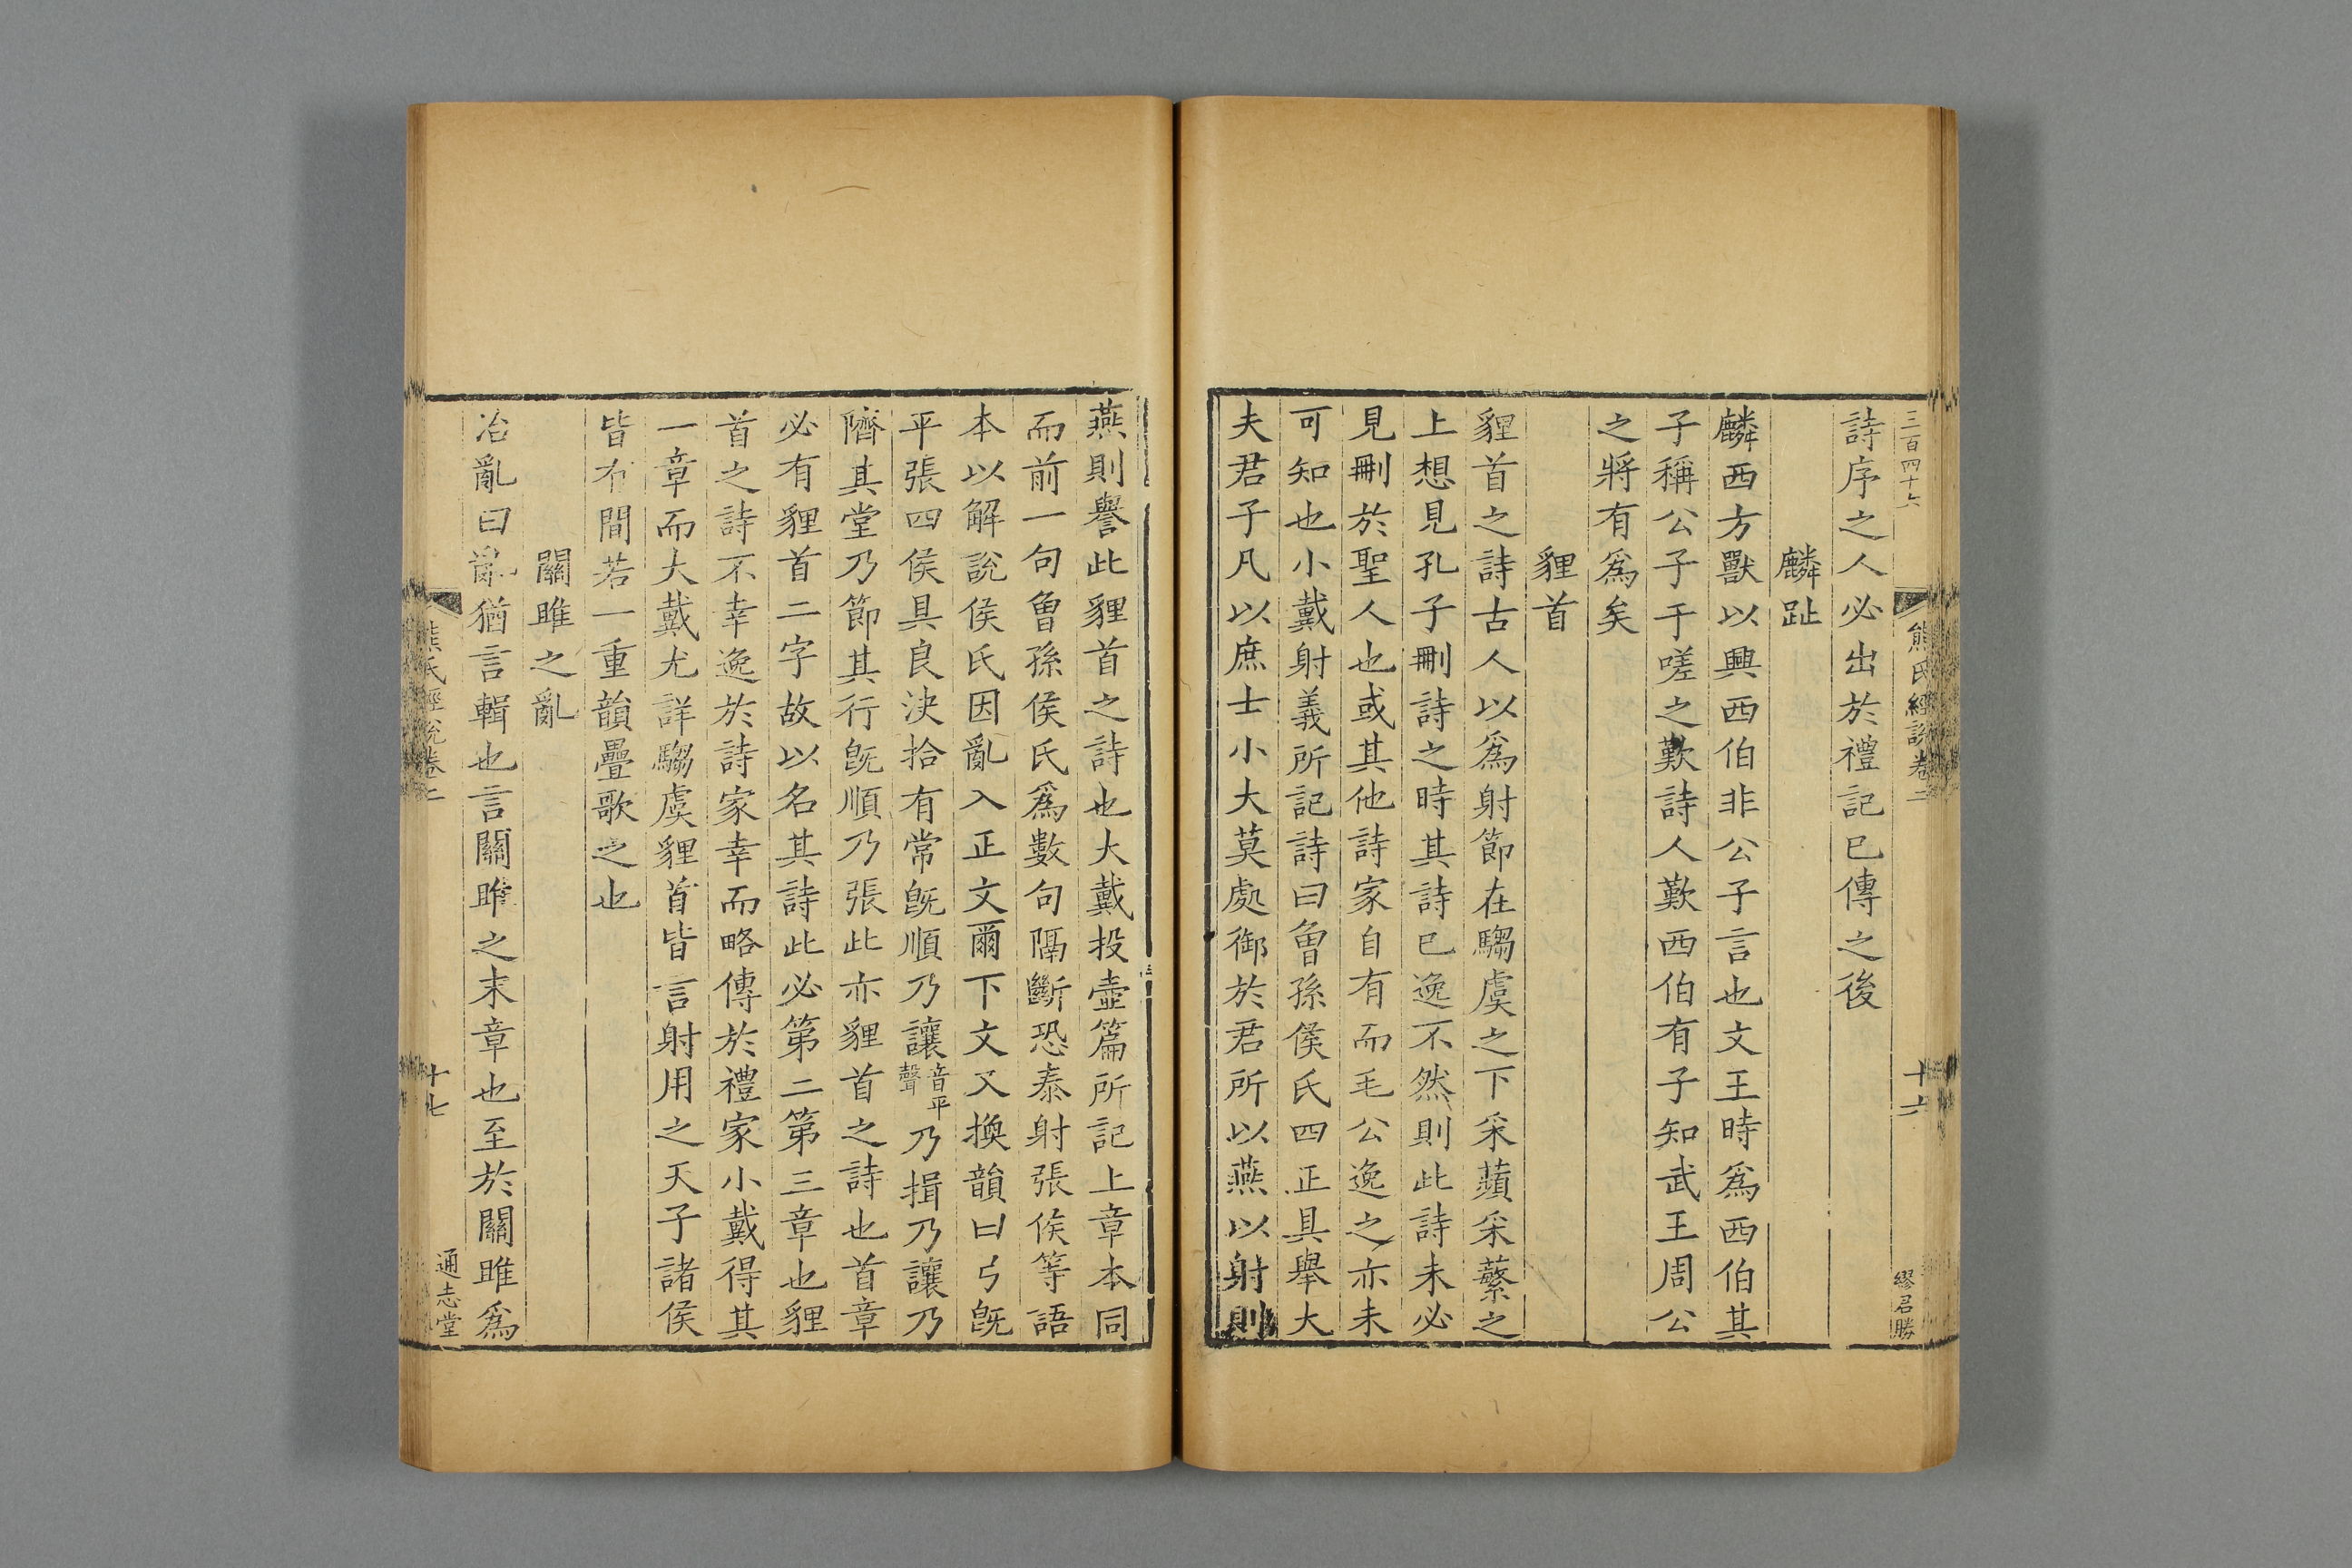 三百四十六
熊氏經說卷二
十六
繆君勝
詩序之人必出於禮記已傳之後
麟趾
麟西方獸以興西伯非公子言也文王時爲西伯其
子稱公子于嗟之歎詩人歎西伯有子知武王周公
之將有爲矣
貍首
貍首之詩古人以爲射節在騶虞之下采蘋采蘩之
上想見孔子刪詩之時其詩已逸不然則此詩未必
見刪於聖人也或其他詩家自有而毛公逸之亦未
可知也小戴射義所記詩曰曾孫侯氏四正具舉大
夫君子凡以庶士小大莫處御於君所以燕以射則
燕則譽此貍首之詩也大戴投壺篇所記上章本同
而前一句曾孫侯氏爲數句隔斷恐泰射張侯等語
本以解說侯氏因亂入正文爾下文又換韻曰弓旣
平張四侯具良決拾有常旣順乃讓音平聲乃揖乃讓乃
隮其堂乃節其行旣順乃張此亦貍首之詩也首章
必有貍首二字故以名其詩此必第二第三章也貍
首之詩不幸逸於詩家幸而略傳於禮家小戴得其
一章而大戴尤詳騶虞貍首皆言射用之天子諸侯
皆有間若一重韻疊歌之也
關雎之亂
治亂曰亂猶言輯也言關雎之末章也至於關雎爲
熊氏經說卷二
十七
通志堂